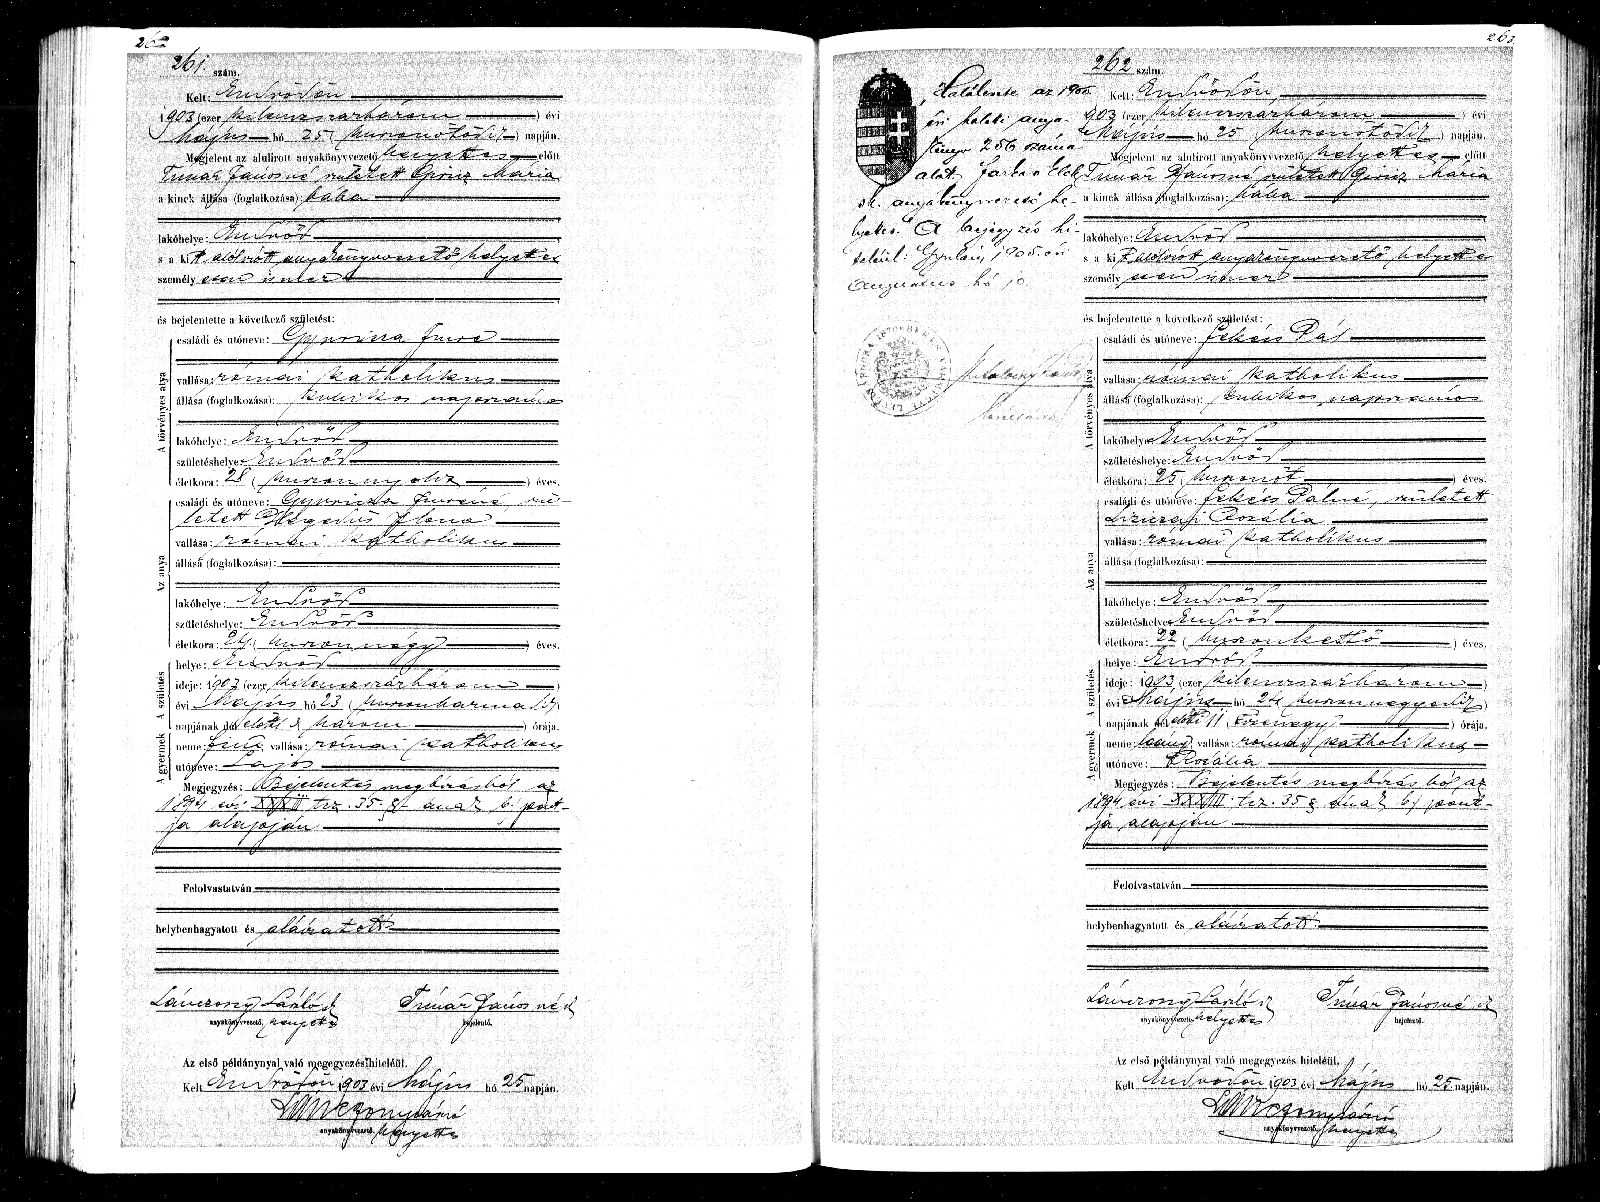 262
261. szám.
Kelt: Endrődön
1903 (ezer kilenczszázhárom) évi
Május hó 25 (huszonötödik) napján.
Megjelent az alulirott anyakönyvvezető helyettes előtt
Timár Jánosné született Giricz Mária
a kinek állása (foglalkozása): bába
lakóhelye: Endrőd
s a kit alólirott anyakönyvvezető helyettes
személyesen ismer
és bejelentette a következő születést:
A törvényes atya
családi és utóneve: Gyuricza Imre
vallása: római katholikus
állása (foglalkozása): kubikos napszámos
lakóhelye: Endrőd
születéshelye: Endrőd
életkora: 28 (huszonnyolcz) éves.
Az anya
családi és utóneve: Gyuricza Imréné, szü-
letett Hegedüs Ilona
vallása: római katholikus
állása (foglalkozása):
lakóhelye: Endrőd
születéshelye: Endrőd
életkora: 24 (huszonnégy) éves.
A gyermek A születés
helye: Endrőd
ideje: 1903 (ezer kilenczszázhárom)
évi Május hó 23 (huszonharmadik)
napjának délelőtti 3 három órája.
neme: fiú vallása: római katholikus
utóneve: Lajos
Megjegyzés: Bejelentés megbizásból az
1894 évi XXXIII tcz. 35 § ának b) pont-
ja alapján.
Felolvastatván
helybenhagyatott és aláiratott
Lánczony László
anyakönyvvezető, helyettes
Timár Jánosné
bejelentő.
Az első példánynyal való megegyezés hiteléül.
Kelt Endrődön 1903 évi Május hó 25 napján.
anyakönyvvezető helyettes
263
Halálozta az 1905
évi halotti anya-
könyv 256 száma
alatt
anyakönyvvezető he-
lyettes. A bejegyzés hi-
teléül: Gyulán, 1905. évi
Augusztus hó 10
262 szám.
Kelt: Endrődön
1903 (ezer kilenczszázhárom) évi
Május hó 25 (huszonötödik) napján.
Megjelent az alulirott anyakönyvvezető helyettes előtt
Timár Jánosné született Giricz Mária
a kinek állása (foglalkozása): bába
lakóhelye: Endrőd
s a kit alólirott anyakönyvvezető helyettes
személyesen ismer
és bejelentette a következő születést:
A törvényes atya
családi és utóneve: Fekécs Pál
vallása: római katholikus
állása (foglalkozása): kubikos napszámos
lakóhelye: Endrőd
születéshelye: Endrőd
életkora: 25 (huszonöt) éves.
Az anya
családi és utóneve: Fekécs Pálné, született
Rozália
vallása: római katholikus
állása (foglalkozása):
lakóhelye: Endrőd
születéshelye: Endrőd
életkora: 22 (huszonkettő) éves.
A gyermek A születés
helye: Endrőd
ideje: 1903 (ezer kilenczszázhárom)
évi Május hó 24 (huszonnegyedik)
napjának délelőtti 11 tizenegy órája.
neme: leány vallása: római katholikus
utóneve: Rozália
Megjegyzés: Bejelentés megbizásból az
1894 évi XXXIII tcz. 35 § ának b) pont-
ja alapján.
Felolvastatván
helybenhagyatott és aláiratott
Lánczony László
anyakönyvvezető helyettes
Timár Jánosné
bejelentő.
Az első példánynyal való megegyezés hiteléül.
Kelt Endrődön 1903 évi Május hó 25 napján.
anyakönyvvezető, helyettes